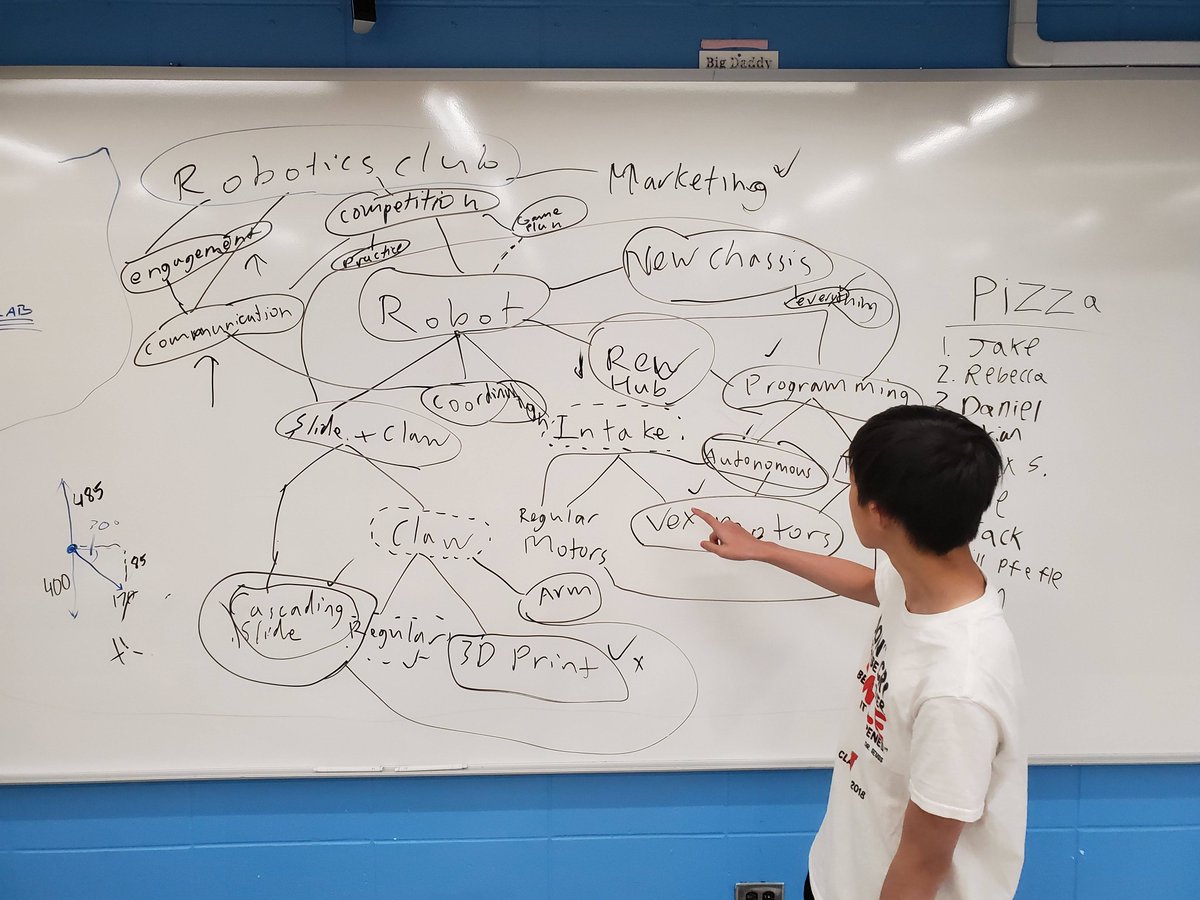 Big Daddy
Robotics club
Marketing
competition
Game
Plan
engagement
Practice
New Chassis
everything
communication
Robot
LAB
Rev
Hub
Programming
Coordination
Slide + Claw
Intake
Autonomous
Regular
Motors
Vex motors
Claw
Arm
Cascading
Slide
Regular
3D Print
x
485
70°
400
85
PiZZa
1. Jake
2. Rebecca
Daniel
x s.
Jack
Pfefle
2018